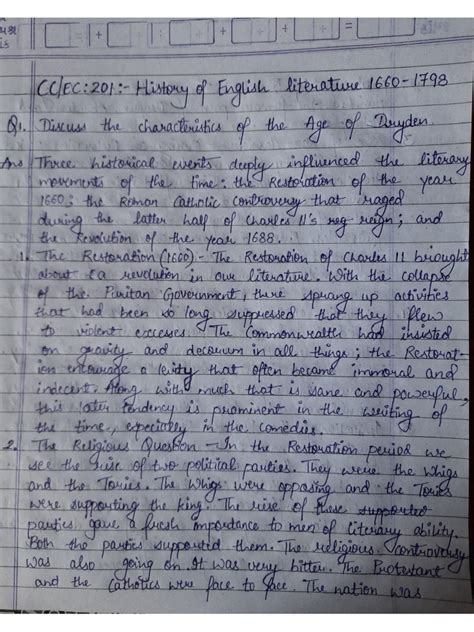 CC/EC:201:- History of English literature 1660-1798
Q1. Discuss the characteristics of the Age of Dryden
Ans Three historical events deeply influenced the literary
movements of the time: the Restoration of the year
1660; the Roman Catholic controversy that raged
during the latter half of Charles II's reg reign; and
the Revolution of the year 1688.
1. The Restoration (1660):- The Restoration of Charles II brought
about a revolution in our literature. With the collapse
of the Puritan Government, there sprang up activities
that had been so long suppressed that they flew
to violent excesses. The Commonwealth had insisted
on gravity and decorum in all things; the Restorat-
ion encourage a levity that often became immoral and
indecent. Along with much that is sane and powerful,
this later tendency is prominent in the writing of
the time, especially in the comedies.
2. The Religious Question - In the Restoration period we
see the rise of two political parties. They were the Whigs
and the Tories. The Whigs were opposing and the Tories
were supporting the king. The rise of these supported
parties gave a fresh importance to men of literary ability.
Both the parties supported them. The religious controversy
was also going on. It was very bitter. The Protestant
and the Catholics were face to face. The nation was